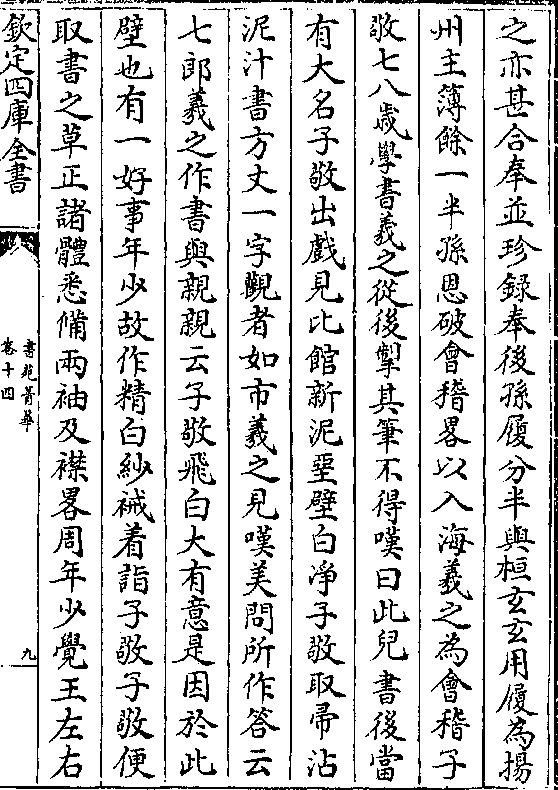 之亦甚合奉並珍録奉後孫履分半與桓玄玄用履為揚
州主簿餘一半孫恩破會稽畧以入海羲之為會稽子
敬七八歲學書羲之從後掣其筆不得嘆曰此兒書後當
有大名子敬出戲見北館新泥堊壁白浄子敬取帚沾
泥汁書方丈一字觀者如市羲之見嘆美問所作答云
七郎羲之作書與親親云子敬飛白大有意是因於此
壁也有一好事年少故作精白紗裓着詣子敬子敬便
取書之草正諸體悉備兩袖及襟畧周年少覺王左右
欽定四庫全書
書苑菁華
卷十四
九